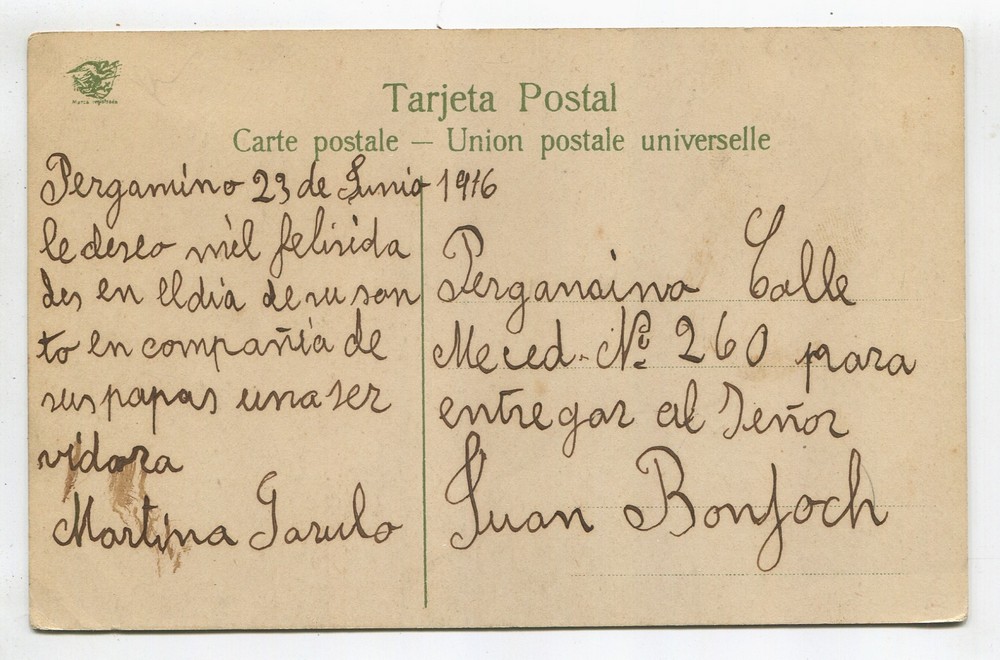 Marca registrada
Tarjeta Postal
Carte postale — Union postale universelle
Pergamino 23 de Junio 1916
le deseo mil felisida
des en el dia de su san
to en compañia de
sus papas una ser
vidora
Martina Garulo
Pergamino Calle
Meced. Nº 260 para
entregar al Señor
Juan Bonfoch